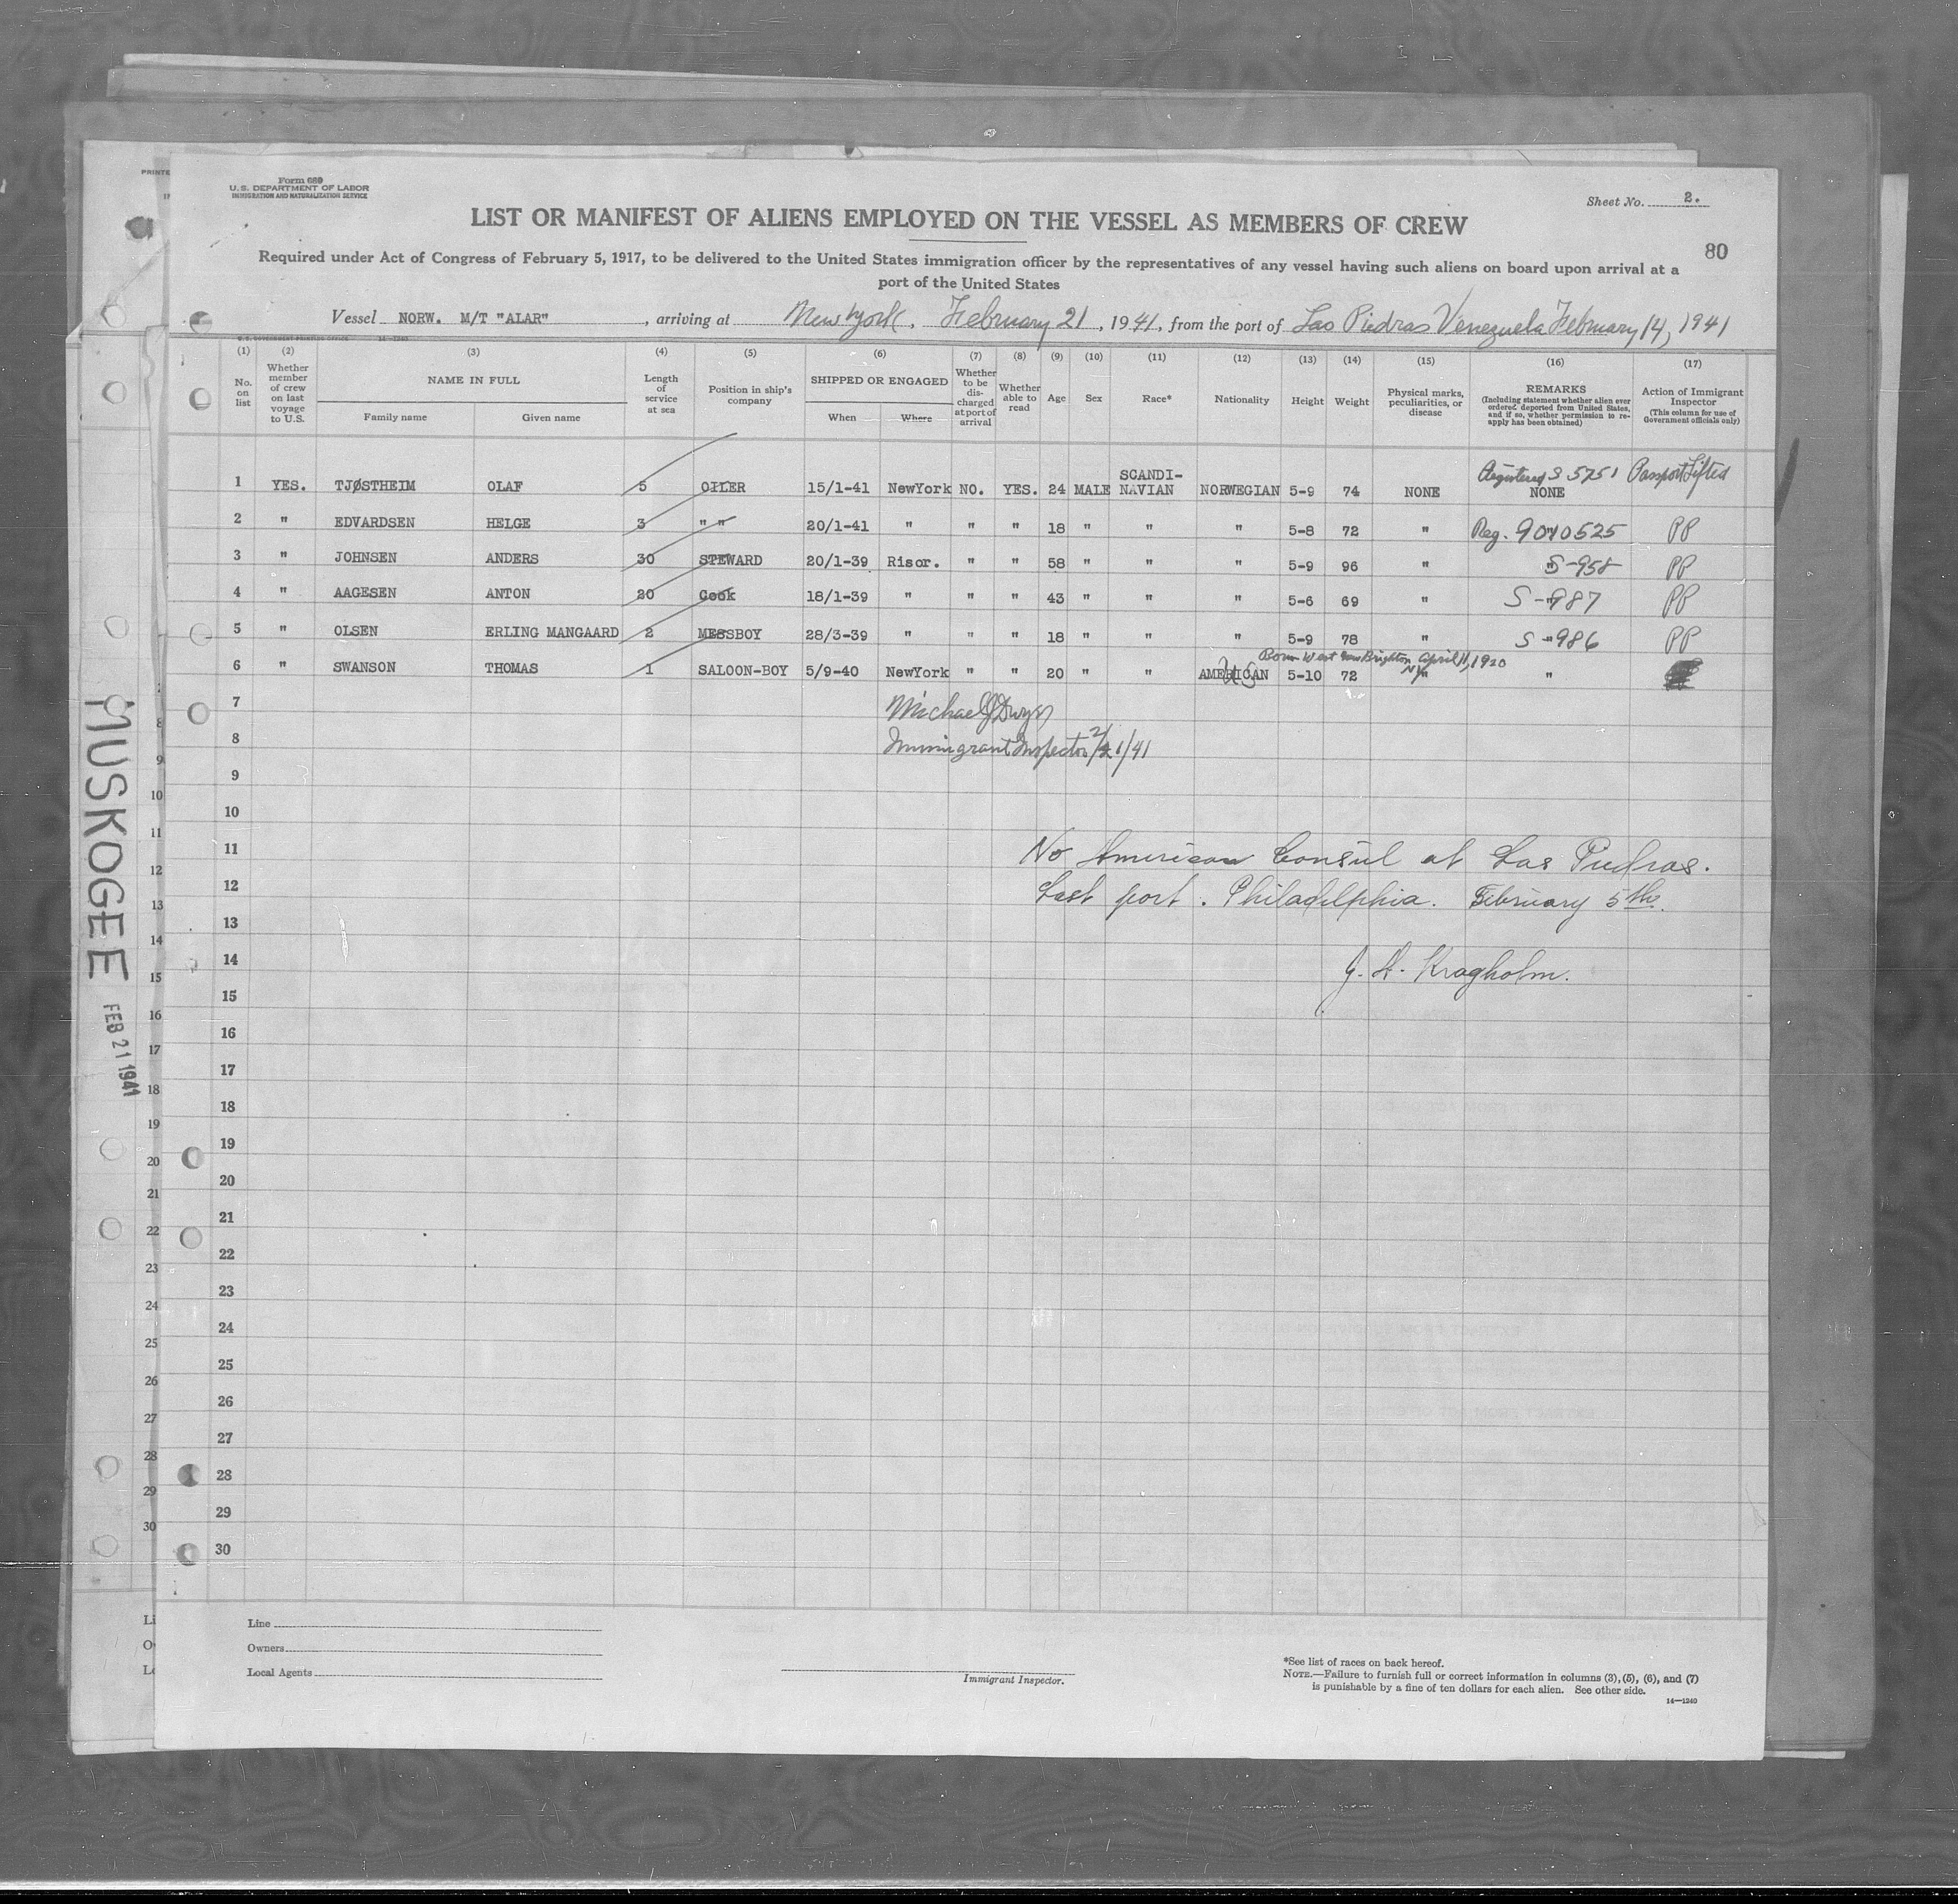 PRINTE
Form 680
U. S. DEPARTMENT OF LABOR
IMMIGRATION AND NATURALIZATION SERVICE
Sheet No. 2.
LIST OR MANIFEST OF ALIENS EMPLOYED ON THE VESSEL AS MEMBERS OF CREW
80
Required under Act of Congress of February 5, 1917, to be delivered to the United States immigration officer by the representatives of any vessel having such aliens on board upon arrival at a
port of the United States
Vessel NORW. M/T "ALAR", arriving at New York, February 21, 1941, from the port of Las Piedras Venezuela February 14, 1941
(1) (2) (3) (4) (5) (6) (7) (8) (9) (10) (11) (12) (13) (14) (15) (16) (17)
No. on list
Whether member of crew on last voyage to U.S.
NAME IN FULL
Family name
Given name
Length of service at sea
Position in ship's company
SHIPPED OR ENGAGED
When
Where
Whether to be discharged at port of arrival
Whether able to read
Age
Sex
Race*
Nationality
Height
Weight
Physical marks, peculiarities, or disease
REMARKS
(Including statement whether alien ever ordered deported from United States, and if so, whether permission to reapply has been obtained)
Action of Immigrant Inspector
(This column for use of Government officials only)
1 YES. TJØSTHEIM OLAF 5 OILER 15/1-41 NewYork NO. YES. 24 MALE SCANDI-NAVIAN NORWEGIAN 5-9 74 NONE Registered S 5751 NONE Passport Lifted
2 " EDVARDSEN HELGE 3 " " 20/1-41 " " " 18 " " " 5-8 72 " Reg. 9070525 PP
3 " JOHNSEN ANDERS 30 STEWARD 20/1-39 Risor. " " 58 " " " 5-9 96 " S-958 PP
4 " AAGESEN ANTON 20 Cook 18/1-39 " " " 43 " " " 5-6 69 " S-987 PP
5 " OLSEN ERLING MANGAARD 2 MESSBOY 28/3-39 " " " 18 " " " 5-9 78 " S-986 PP
Born West New Brighton April 11, 1920
NY
6 " SWANSON THOMAS 1 SALOON-BOY 5/9-40 NewYork " " 20 " " AMERICAN US 5-10 72 " "
7 Michael J Dwyer
8 Immigrant Inspector 2/21/41
9
10
11 No American Consul at Las Piedras.
12 Last port. Philadelphia. February 5th.
13
14 J. H. Kragholm.
15
16
17
18
19
20
21
22
23
24
25
26
27
28
29
30
MUSKOGEE
FEB 21 1941
8
9
10
11
12
13
14
15
16
17
18
19
20
21
22
23
24
25
26
27
28
29
30
Li
O
Lo
Line
Owners
Local Agents
Immigrant Inspector.
*See list of races on back hereof.
NOTE.—Failure to furnish full or correct information in columns (3), (5), (6), and (7)
is punishable by a fine of ten dollars for each alien. See other side.
14—1240